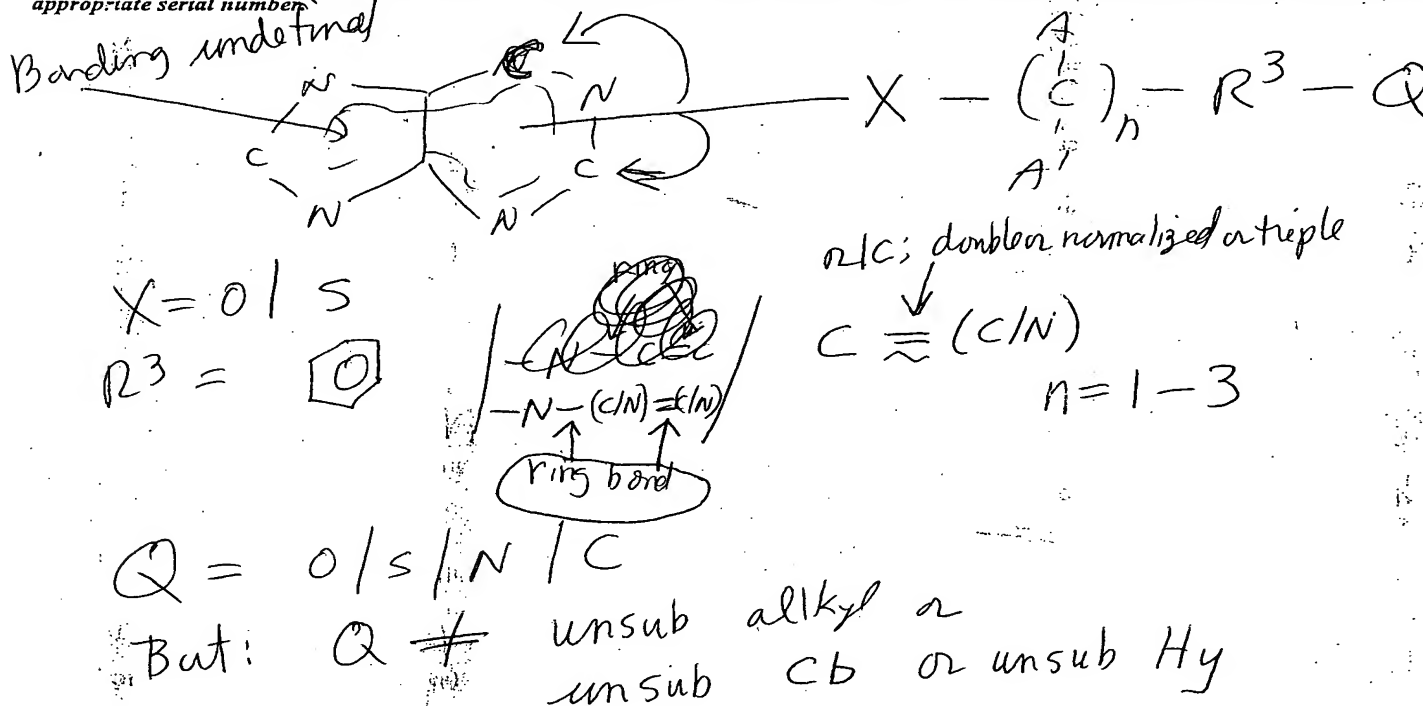 appropriate serial number
Bonding undefined
N C N C N C N
X — (C)n — R³ — Q
A
A'
X = O / S
R³ =
ring
/ -N-(C/N)=(C/N) /
ring bond
r/c; double or normalized or triple
C ≡ (C/N)
n = 1 - 3
Q = O / S / N / C
But: Q ≠ unsub alkyl or
unsub Cb or unsub Hy